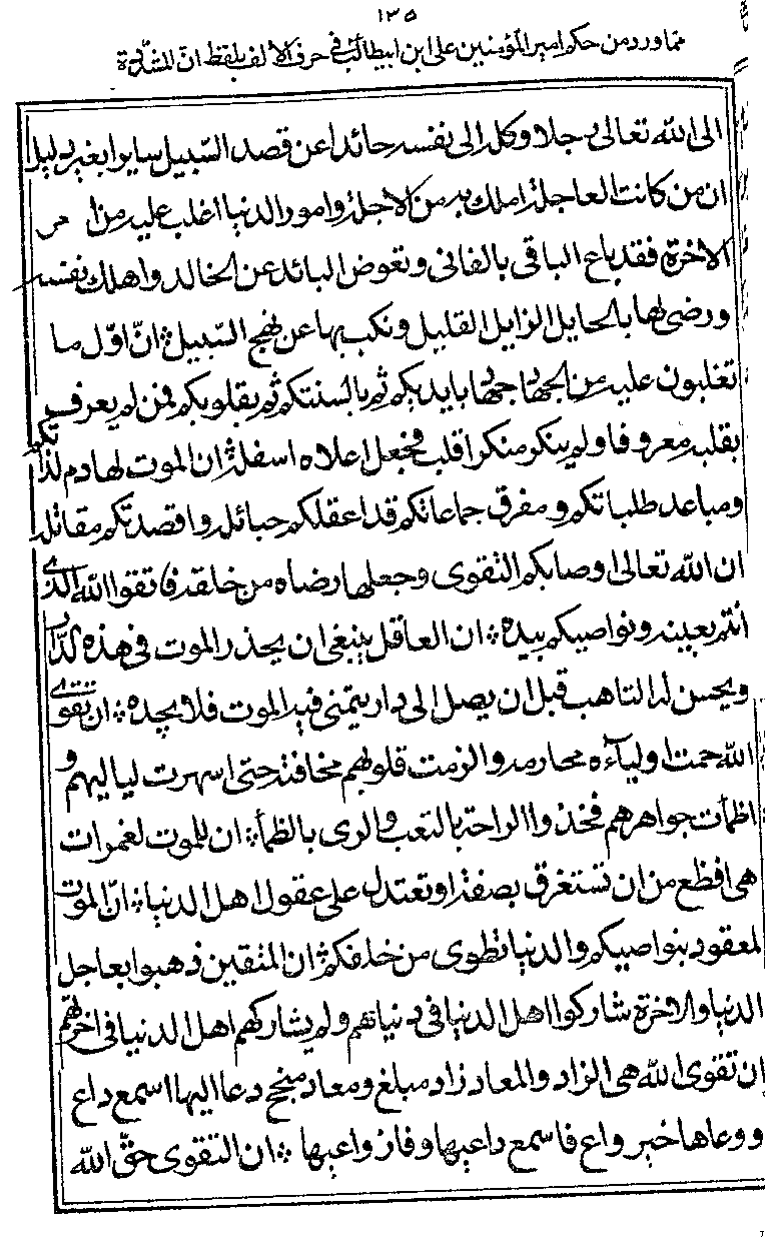 ١٣٥
مما ورد من حكم امير المؤمنين علي ابن ابيطالب في حرف الالف بلفظ انّ المشدّدة
الى الله تعالى رجلا وكله الى نفسه حائدا عن قصد السّبيل سايرا بغير دليل
ان من كانت العاجلة املك به من الاجلة وامور الدنيا اغلب عليه من امور
الاخرة فقد باع الباقي بالفاني وتعوض البائد عن الخالد واهلك نفسه
ورضى لها بالحايل الزايل القليل ونكب بها عن نهج السّبيل انّ اوّل ما
تغلبون عليه من الجهاد جهاد بايديكم ثم بالسنتكم ثم بقلوبكم فمن لم يعرف
بقلبه معروفا ولم ينكر منكرا قلب فجعل اعلاه اسفله ان الموت لهادم لذاتكم
ومباعد طلباتكم ومفرق جماعاتكم قد اعقلكم حبائله واقصدتكم مقاتله
ان الله تعالى اوصاكم بالتقوى وجعلها رضاه من خلقه فاتقوا الله الذي
انتم بعينه ونواصيكم بيده ان العاقل ينبغي ان يحذر الموت في هذه الدّار
ويحسن له التاهب قبل ان يصل الى دار يتمنى فيه الموت فلا يجده ان تقوى
الله حمت اولياءه محارمه والزمت قلوبهم مخافته حتى اسهرت لياليهم و
اظمأت هواجرهم فخذوا الراحة بالتعب والرى بالظمأ ان للموت لغمرات
هي افظع من ان تستغرق بصفة او تعتدل على عقول اهل الدنيا انّ الموت
لمعقود بنواصيكم والدنيا تطوى من خلفكم ان المتقين ذهبوا بعاجل
الدنيا والاخرة شاركوا اهل الدنيا في دنياهم ولم يشاركهم اهل الدنيا في اخرتهم
ان تقوى الله هي الزاد والمعاد زاد مبلغ ومعاد منجح دعا اليها اسمع داع
ووعاها خير واع فاسمع داعيها وفاز واعيها ان التقوى حقّ الله